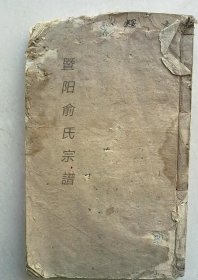 暨阳俞氏宗谱